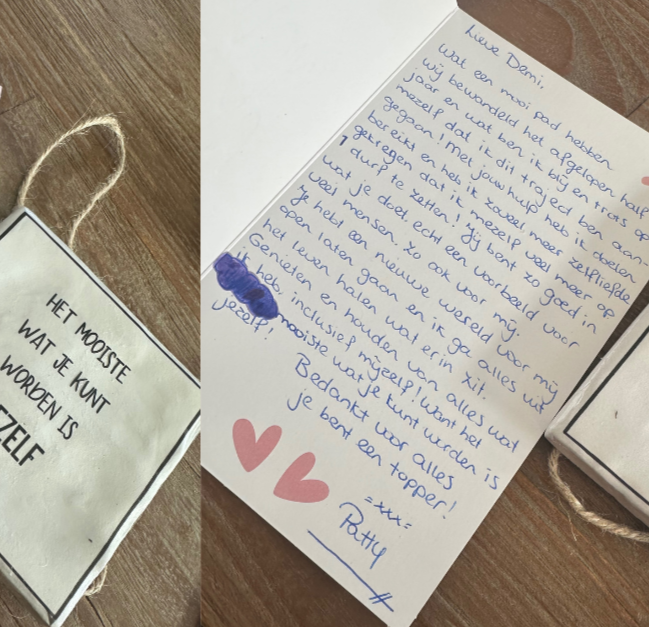 HET MOOISTE
WAT JE KUNT
WORDEN IS
EZELF
Lieve Demi,
Wat een mooi pad hebben
wij bewandeld het afgelopen half
jaar en wat ben ik blij en trots op
mezelf dat ik dit traject ben aan-
gegaan! Met jouw hulp heb ik doelen
bereikt en heb ik zoveel meer zelfliefde
gekregen dat ik mezelf veel meer op
1 durf te zetten! Jij bent zo goed in
wat je doet echt een voorbeeld voor
veel mensen. Zo ook voor mij.
Je hebt een nieuwe wereld voor mij
open laten gaan en ik ga alles uit
het leven halen wat erin zit.
Genieten en houden van alles wat
ik heb, inclusief mijzelf! Want het
mooiste wat je kunt worden is
jezelf!
Bedankt voor alles
je bent een topper!
=xxx=
Patty